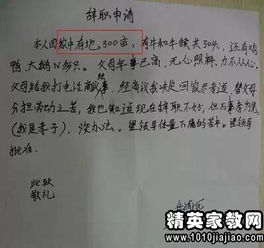 辞职申请
本人因家中有地300亩，有牛和牛犊共30头，还有鸡
鸭、大鹅N多只。父母年事已高，无心照耕，力不从心。
父母给我打电话商议，经商议我决定回家尽孝道，替父母
分担劳动之苦，我也知道现在辞职不好，但万事孝为先
(我是孝子)，没办法。望领导体量下属的苦牛。望领导
批准。
此致
敬礼
精英家教网
www.1010jiajiao.com